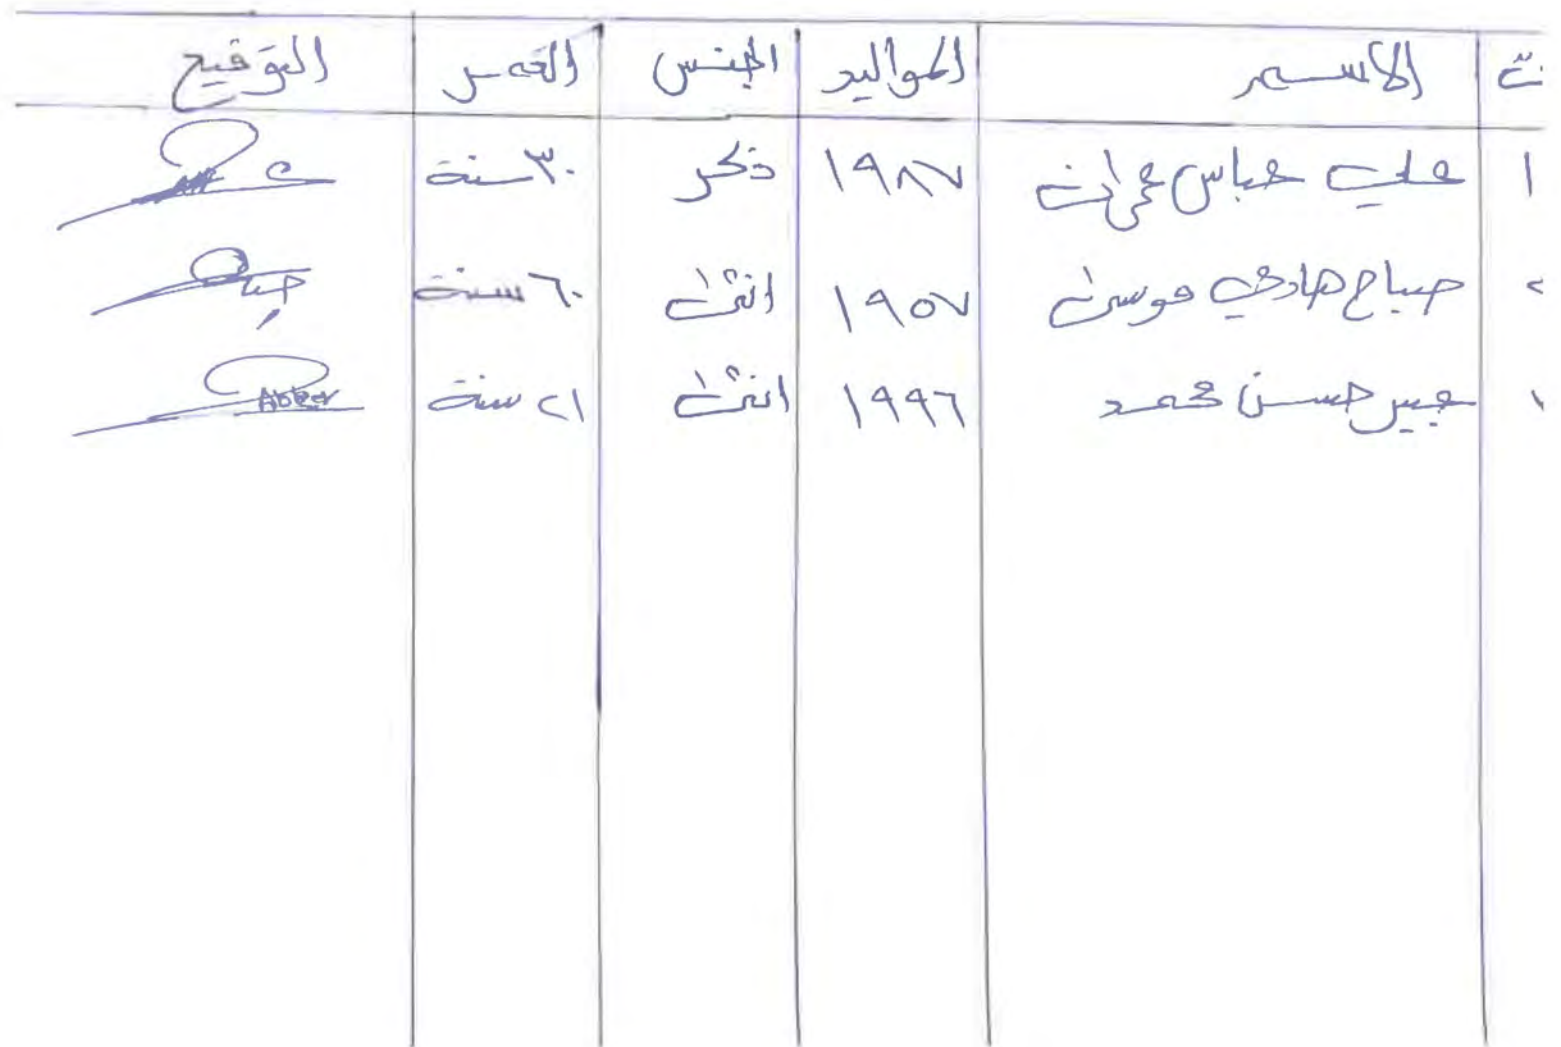 ت الاسم المواليد الجنس العمر التوقيع
١ علي عباس عمران ١٩٨٧ ذكر ٣٠ سنة
٢ صباح هادي موسى ١٩٥٧ انثى ٦٠ سنة
عبير حسن محمد ١٩٩٦ انثى ٢١ سنة Abeer